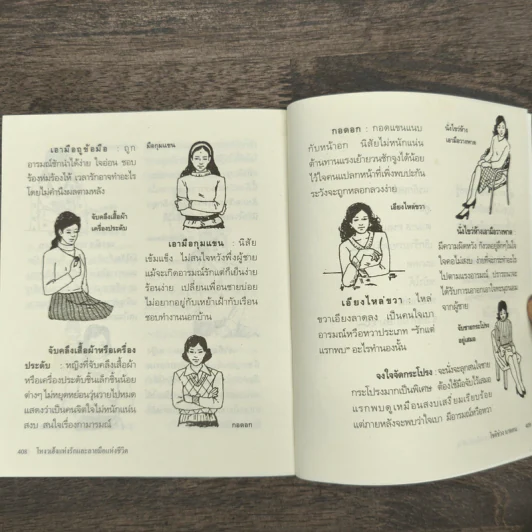 เอามือถูข้อมือ : ถูก
อารมณ์ชักนำได้ง่าย ใจอ่อน ชอบ
ร้องห่มร้องไห้ เวลารักอาจทำอะไร
โดยไม่คำนึงผลตามหลัง
มือกุมแขน
จับคลึงเสื้อผ้า
เครื่องประดับ
เอามือกุมแขน : นิสัย
เข้มแข็ง ไม่สนใจหวังพึ่งผู้ชาย
แม้จะเกิดอารมณ์รักแต่ก็เย็นง่าย
ร้อนง่าย เปลี่ยนเพื่อนชายบ่อย
ไม่อยากอยู่กับเหย้าเฝ้ากับเรือน
ชอบทำงานนอกบ้าน
จับคลึงเสื้อผ้าหรือเครื่อง
ประดับ : หญิงที่จับคลึงเสื้อผ้า
หรือเครื่องประดับชิ้นเล็กชิ้นน้อย
ต่างๆ ไม่หยุดหย่อนวุ่นวายไปหมด
แสดงว่าเป็นคนจิตใจไม่หนักแน่น
สงบ สนใจเรื่องกามารมณ์
กอดอก
408 โหงวเฮ้งแห่งรักและลายมือแห่งชีวิต
กอดอก : กอดแขนแนบ
กับหน้าอก นิสัยไม่หนักแน่น
ต้านทานแรงเย้ายวนชักจูงได้น้อย
ไว้ใจคนแปลกหน้าที่เพิ่งพบปะกัน
ระวังจะถูกหลอกลวงง่าย
นั่งไขว่ห้าง
เอามือวางพาด
เอียงไหล่ขวา
นั่งไขว่ห้างเอามือวางพาด
เอียงไหล่ขวา : ไหล่
ขวาเอียงลาดลง เป็นคนใจเบา
อารมณ์หวือหวาประเภท "รักแต่
แรกพบ" อะไรทำนองนั้น
จากผู้ชาย
จับชายกระโปรง
อยู่เสมอ
จงใจจัดกระโปรง : จะนั่งจะลุกสนใจชาย
กระโปรงมากเป็นพิเศษ ต้องใช้มือจับไว้เสมอ
แรกพบดูเหมือนสงบเสงี่ยมเรียบร้อย
แต่ภายหลังจะพบว่าใจเบา มีอารมณ์หวือหวา